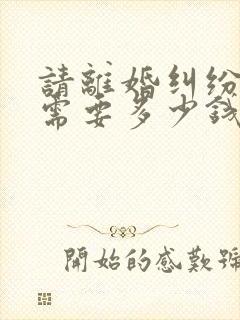 請離婚糾纷
需要多少錢
開始的感歎號